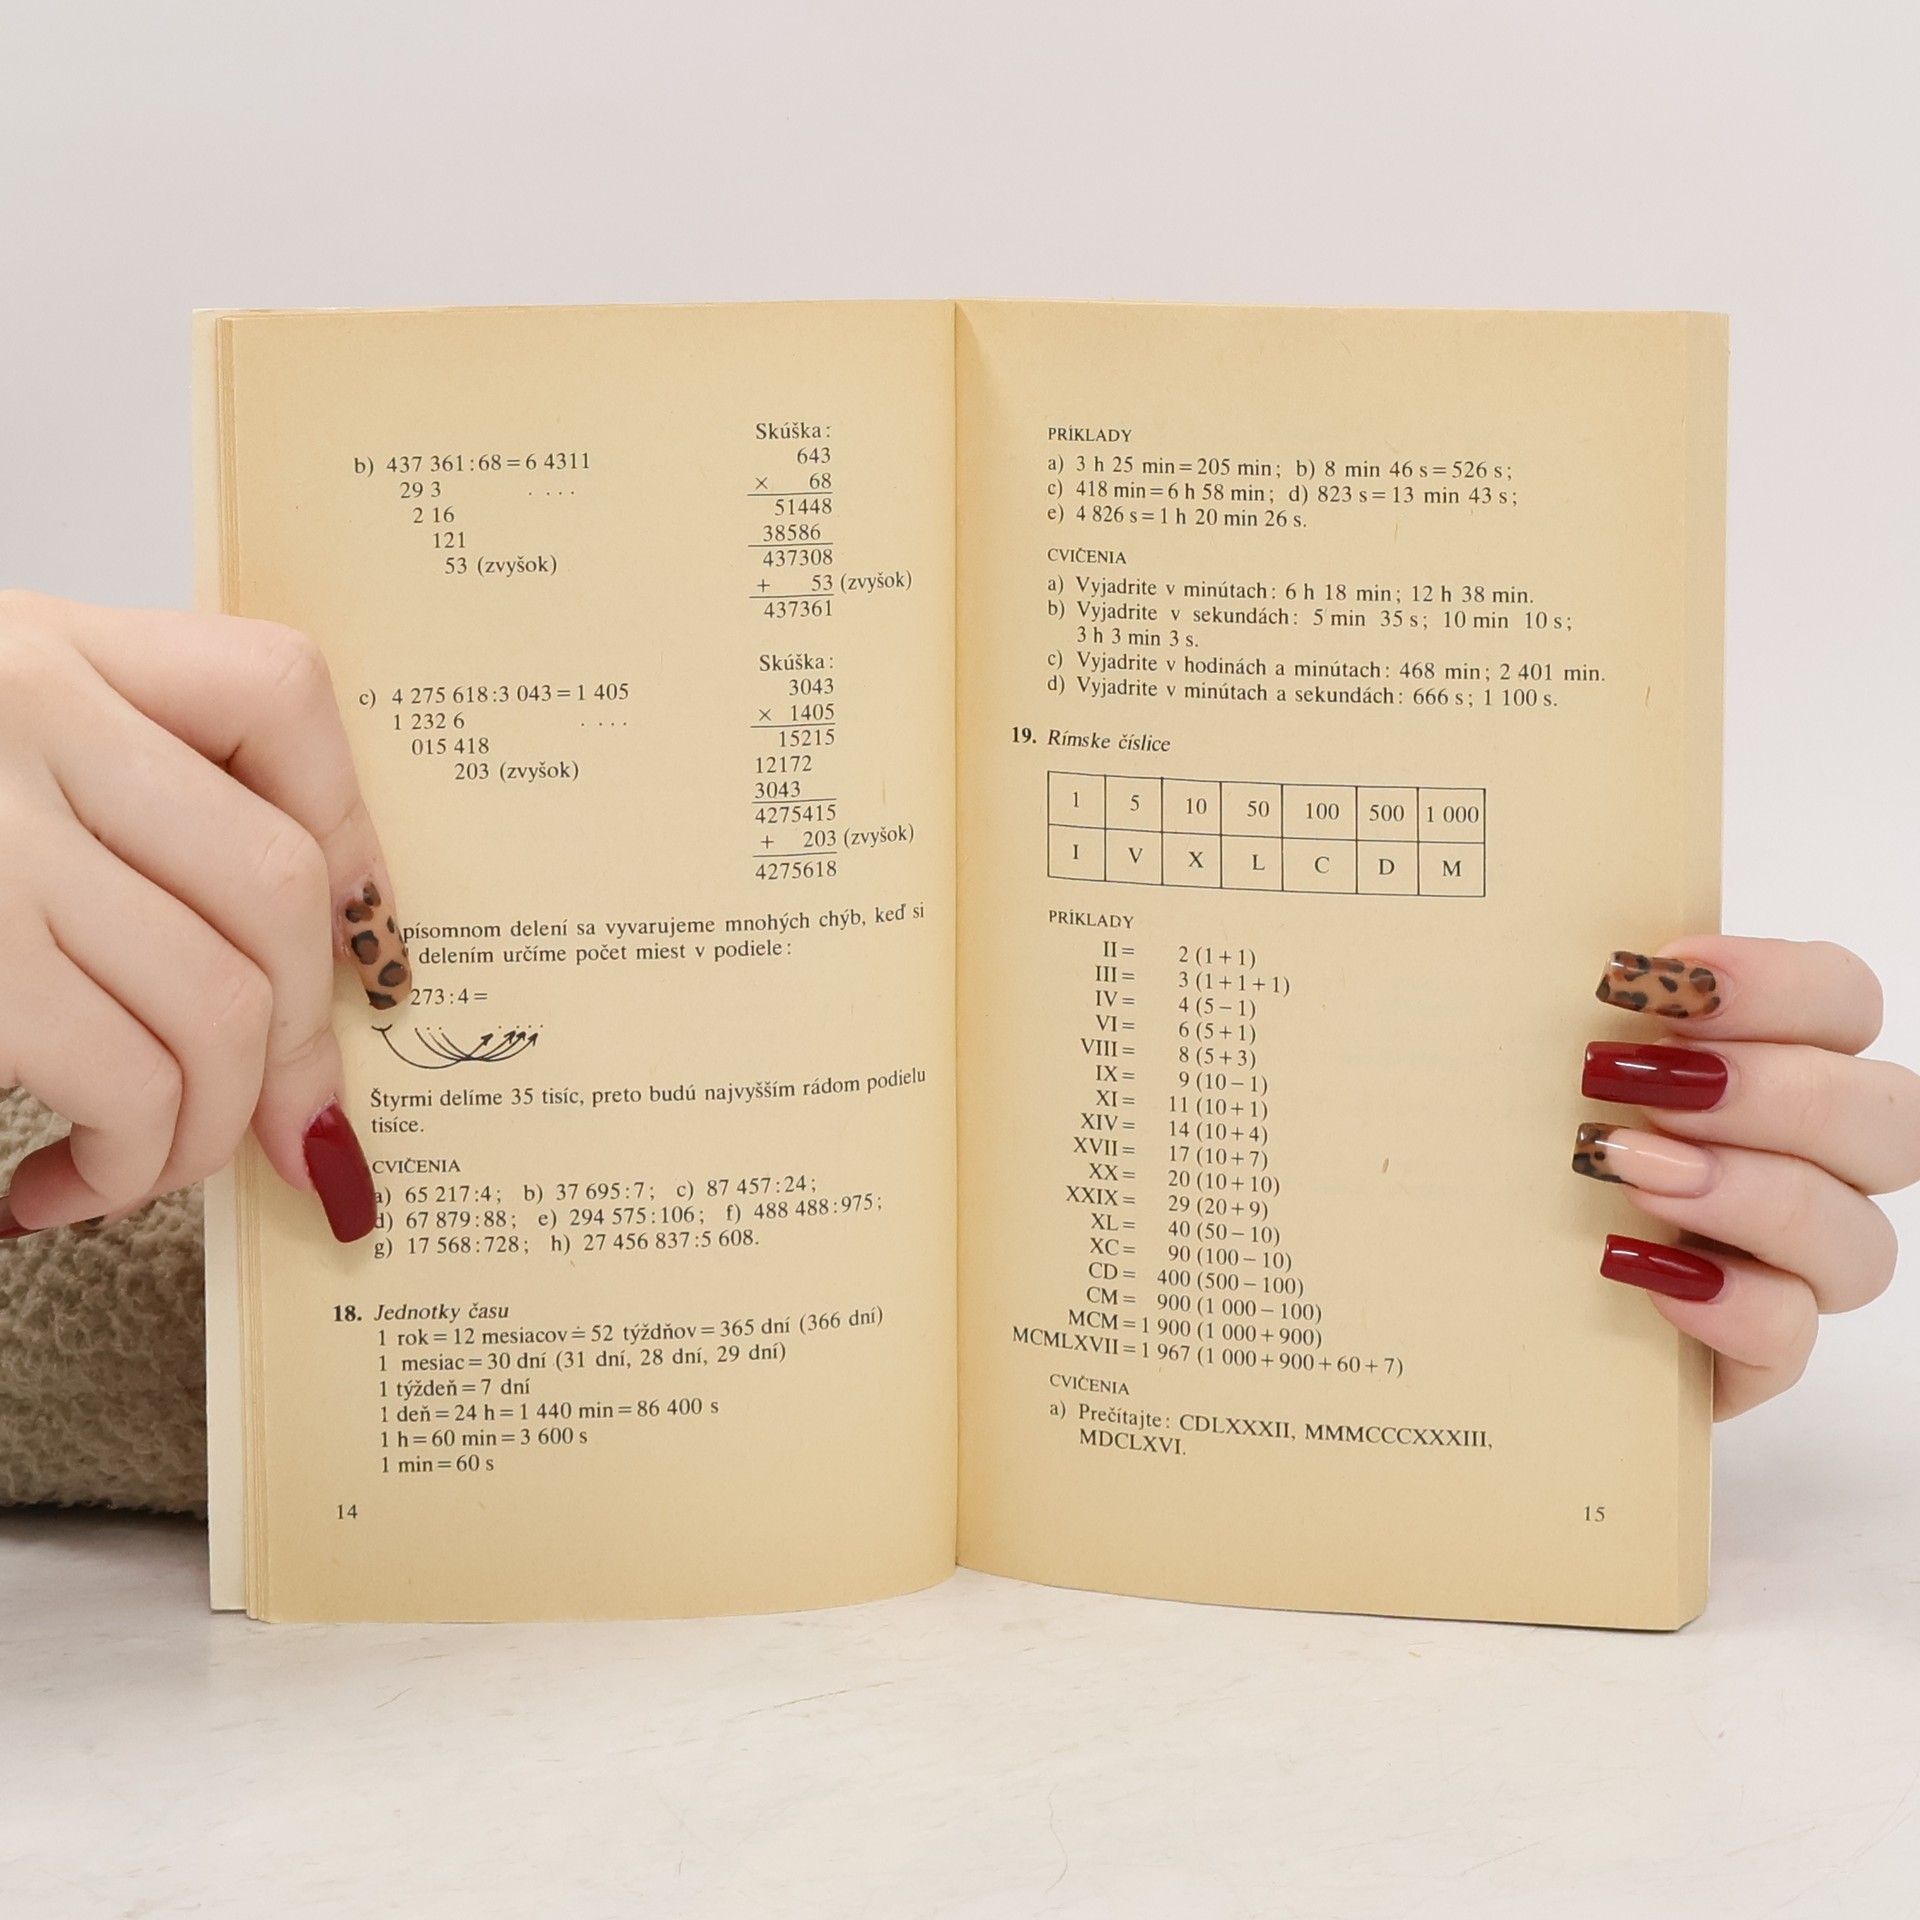 Skúška:
b) 437 361:68=6 4311
29 3 . . . .
2 16
121
53 (zvyšok)
643
× 68
51448
38586
437308
+ 53 (zvyšok)
437361
Skúška:
c) 4 275 618:3 043=1 405
1 232 6 . . . .
015 418
203 (zvyšok)
3043
× 1405
15215
12172
3043
4275415
+ 203 (zvyšok)
4275618
písomnom delení sa vyvarujeme mnohých chýb, keď si
delením určíme počet miest v podiele:
273:4=
Štyrmi delíme 35 tisíc, preto budú najvyšším rádom podielu
tisíce.
CVIČENIA
a) 65 217:4; b) 37 695:7; c) 87 457:24;
d) 67 879:88; e) 294 575:106; f) 488 488:975;
g) 17 568:728; h) 27 456 837:5 608.
18. Jednotky času
1 rok=12 mesiacov≐52 týždňov=365 dní (366 dní)
1 mesiac=30 dní (31 dní, 28 dní, 29 dní)
1 týždeň=7 dní
1 deň=24 h=1 440 min=86 400 s
1 h=60 min=3 600 s
1 min=60 s
14
PRÍKLADY
a) 3 h 25 min=205 min; b) 8 min 46 s=526 s;
c) 418 min=6 h 58 min; d) 823 s=13 min 43 s;
e) 4 826 s=1 h 20 min 26 s.
CVIČENIA
a) Vyjadrite v minútach: 6 h 18 min; 12 h 38 min.
b) Vyjadrite v sekundách: 5 min 35 s; 10 min 10 s;
3 h 3 min 3 s.
c) Vyjadrite v hodinách a minútach: 468 min; 2 401 min.
d) Vyjadrite v minútach a sekundách: 666 s; 1 100 s.
19. Rímske číslice
1 5 10 50 100 500 1 000
I V X L C D M
PRÍKLADY
II= 2 (1+1)
III= 3 (1+1+1)
IV= 4 (5−1)
VI= 6 (5+1)
VIII= 8 (5+3)
IX= 9 (10−1)
XI= 11 (10+1)
XIV= 14 (10+4)
XVII= 17 (10+7)
XX= 20 (10+10)
XXIX= 29 (20+9)
XL= 40 (50−10)
XC= 90 (100−10)
CD= 400 (500−100)
CM= 900 (1 000−100)
MCM=1 900 (1 000+900)
MCMLXVII=1 967 (1 000+900+60+7)
CVIČENIA
a) Prečítajte: CDLXXXII, MMMCCCXXXIII,
MDCLXVI.
15